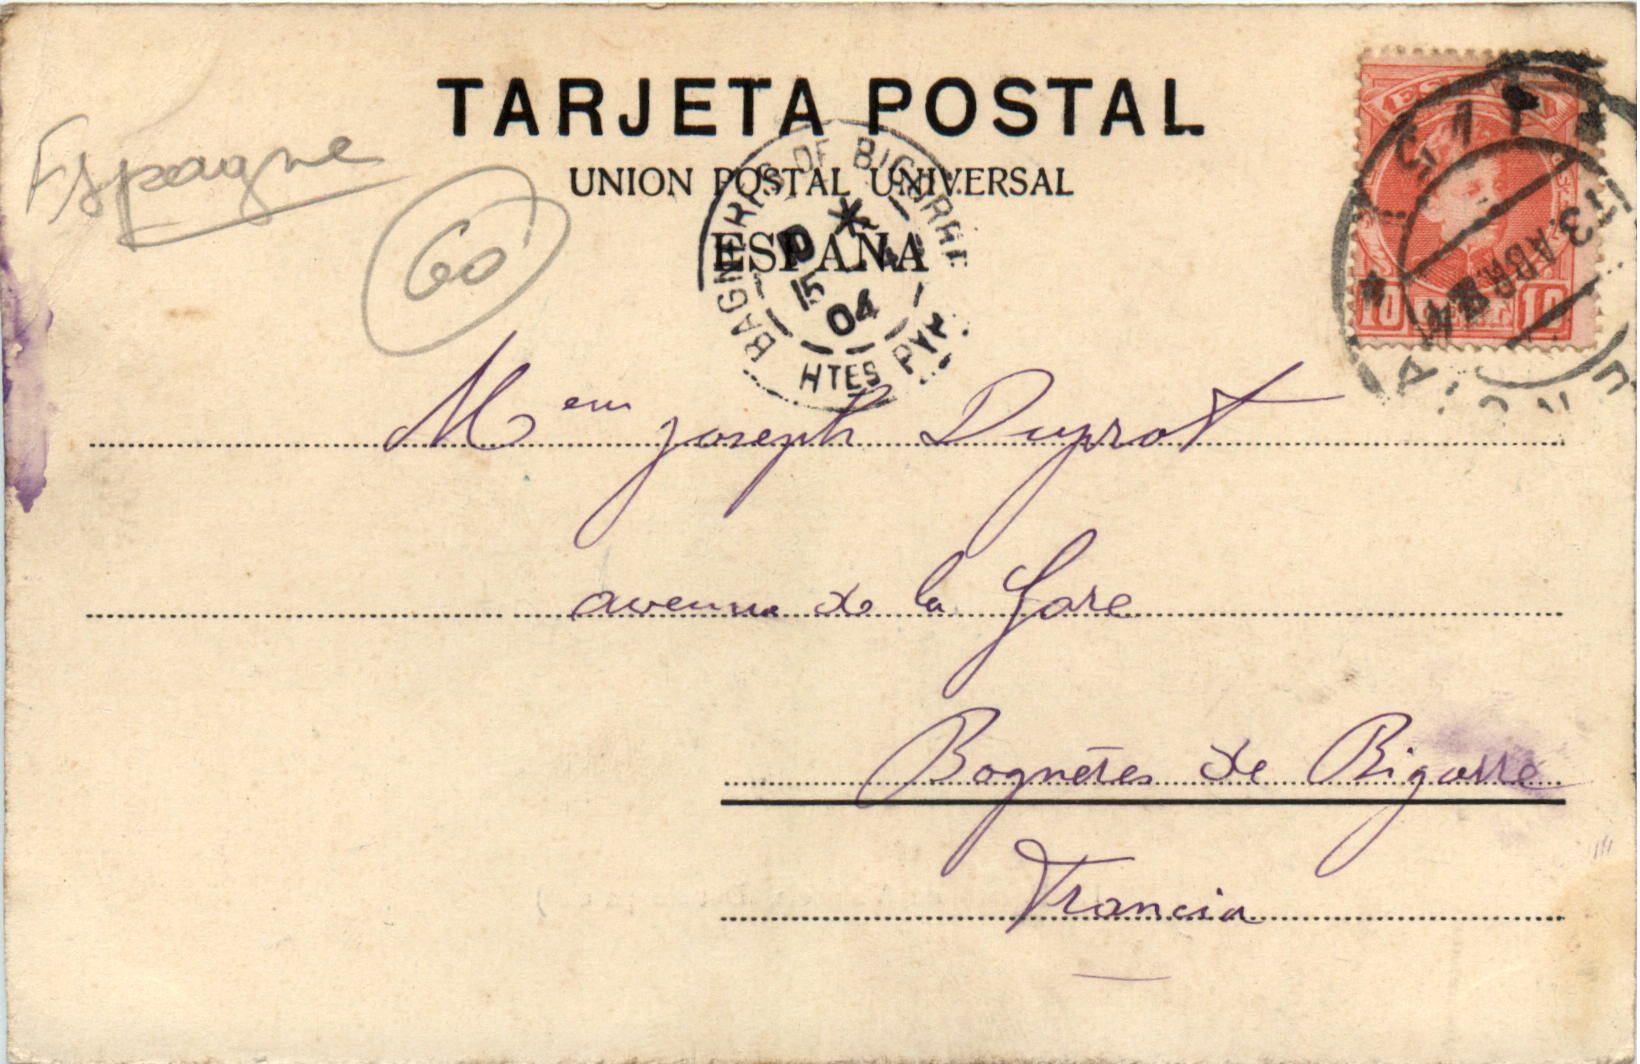 TARJETA POSTAL
UNION POSTAL UNIVERSAL
ESPAÑA
Espagne
60
BAGNERES DE BIGORRE
5 4
04
HTES PYR
3 ABR 04
10 10
Joseph Duprot
avenue de la Gare
Bagnères de Bigorre
Francia